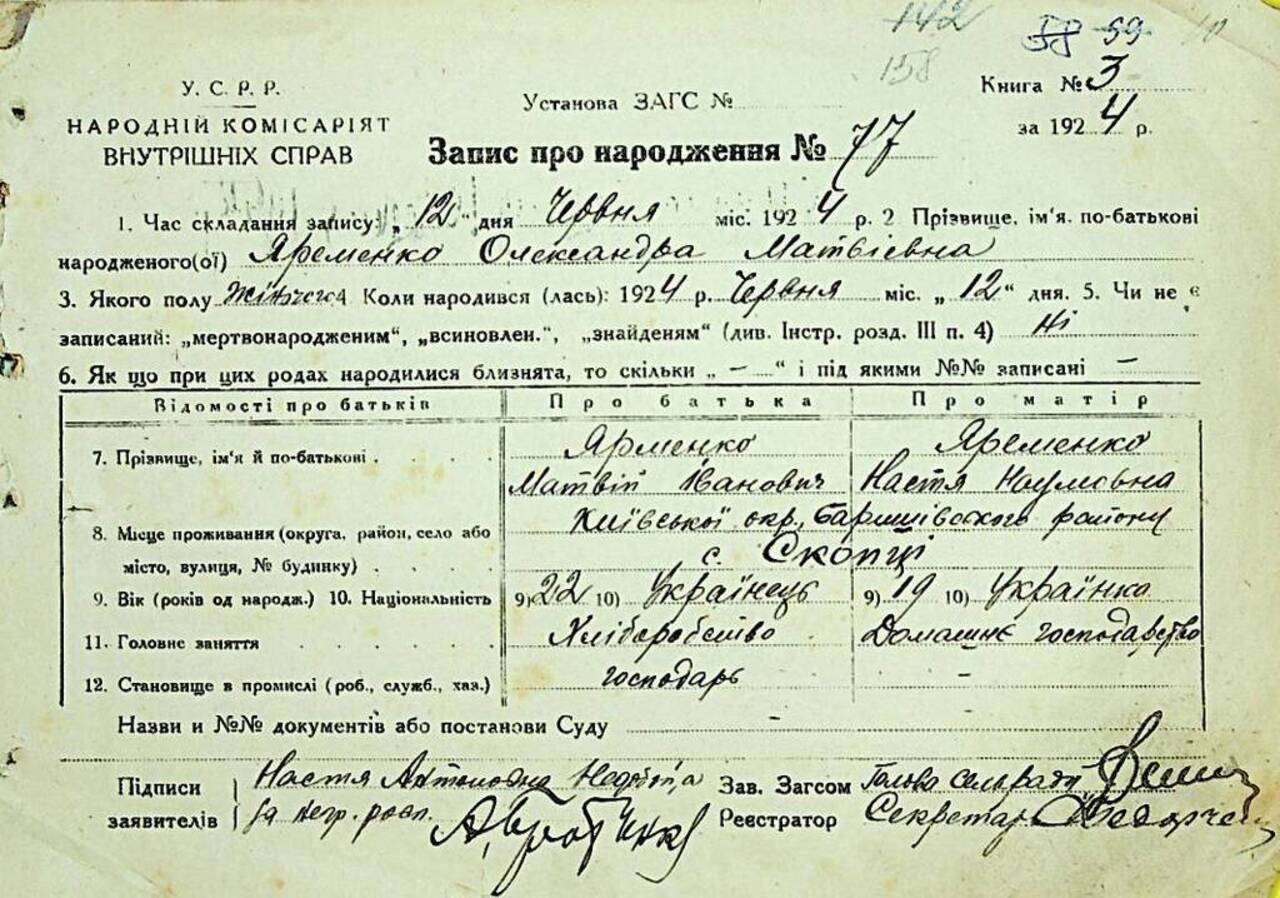 142
59
158
У. С. Р. Р.
НАРОДНІЙ КОМІСАРІЯТ
ВНУТРІШНІХ СПРАВ
Установа ЗАГС №
Книга № 3
за 1924 р.
Запис про народження № 77
1. Час складання запису: „12“ дня Червня міс. 1924 р. 2 Прізвище, ім'я, по-батькові
народженого(ої) Яременко Олександра Матвієвна
3. Якого полу Жіночого 4 Коли народився (лась): 1924 р. Червня міс. „12“ дня. 5. Чи не є
записаний: „мертвонародженим“, „всиновлен.“, „знайденям“ (див. Інстр. розд. III п. 4) Ні
6. Як що при цих родах народилися близнята, то скільки „ – “ і під якими №№ записані –
Відомості про батьків Про батька Про матір
7. Прізвище, ім'я й по-батькові . . . . Ярменко Яременко
Матвій Іванович Настя Наумовна
8. Місце проживання (округа, район, село або Київської окр., Баришівського району
місто, вулиця, № будинку) . . . . с. Скопці
9. Вік (років од народж.) 10. Національність 9) 22 10) Українець 9) 19 10) Українка
11. Головне заняття . . . . . . Хліборобство Домашнє господарство
12. Становище в промислі (роб., служб., хаз.) господарь –
Назви и №№ документів або постанови Суду –
Підписи Настя Зав. Загсом Голова сельради
заявителів за негр. росп. Реєстратор Секретар